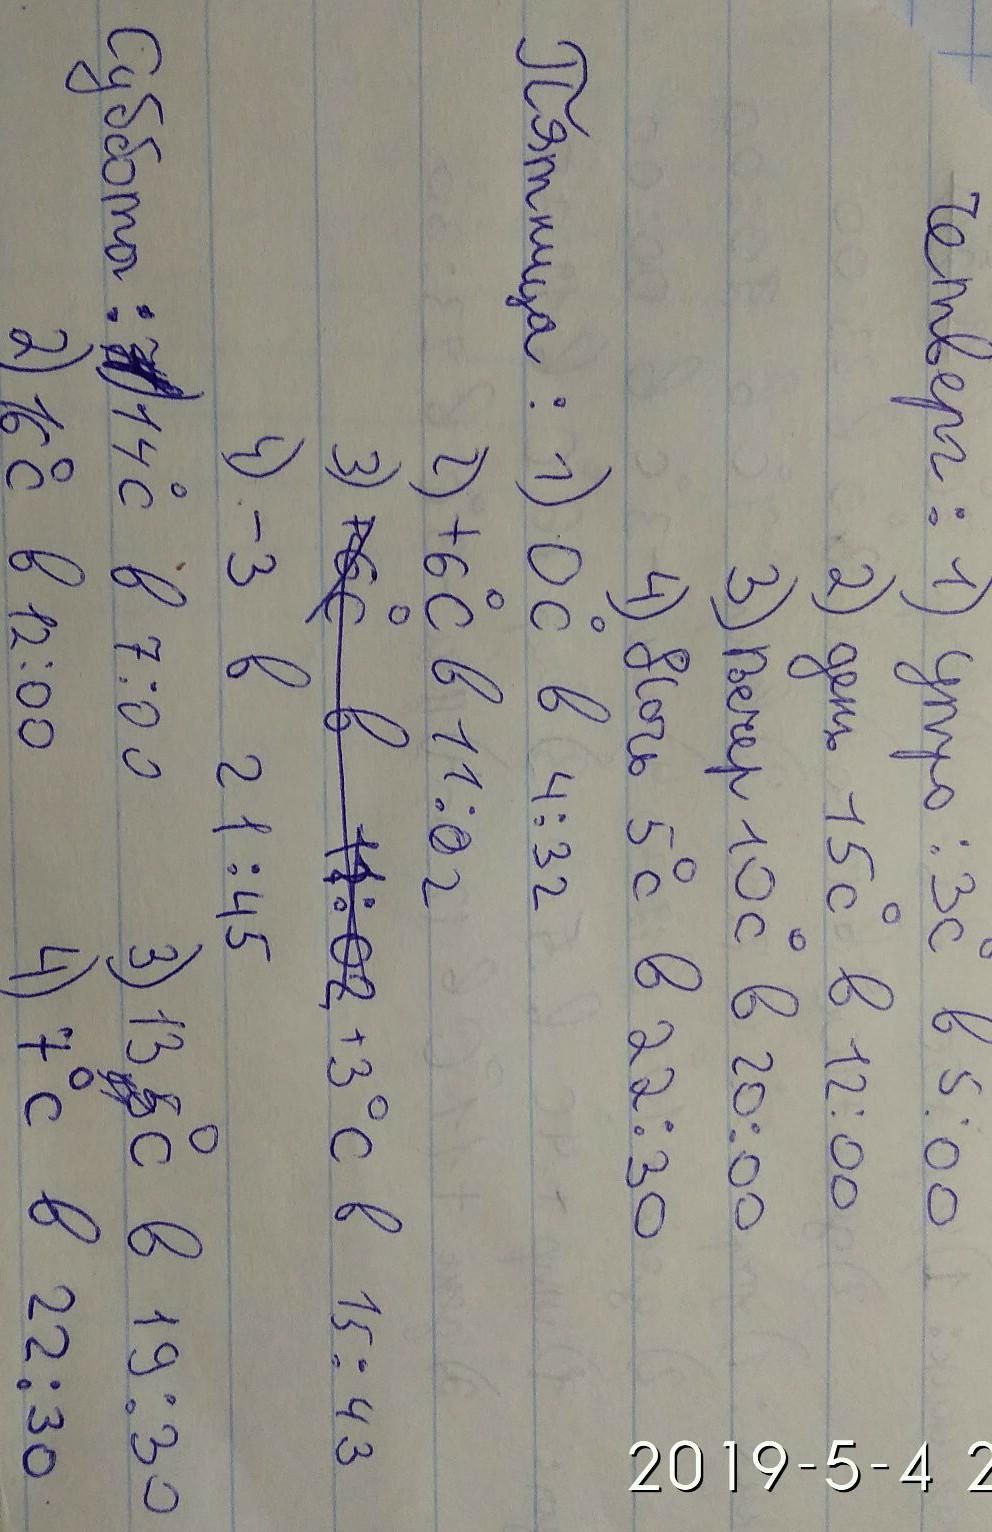 Четверг: 1) утро: 3c° в 5:00
2) день 15c° в 12:00
3) Вечер 10c° в 20:00
4) Ночь 5c° в 22:30
Пятница: 1) 0c° в 4:32
2) +6c° в 11:02
3) +6c° в 11:02 +3°c в 15:43
4) -3 в 21:45
Суббота: 1) 14c° в 7:00 3) 13c° в 19:30
2) 16c° в 12:00 4) 7°c в 22:30
2019-5-4 2